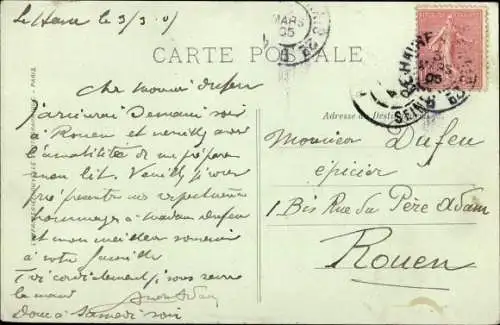 Le Havre le 3/3 05
CARTE POSTALE
MARS
05
LE HAVRE
SEINE
Cher monsieur Dufeu
J'arriverai Demain soir
à Rouen et veuillez avoir
l'amabilité de me préparer
mon lit. Veuillez
présenter mes respectueux
hommages à madame Dufeu
et mon meilleur souvenir
à votre famille
Très cordialement je vous serre
la main
Donc à Samedi soir
PARIS
Adresse du Destinataire
Monsieur Dufeu
épicier
1 Bis Rue du Père Adam
Rouen